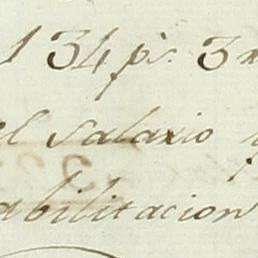 134 p.s 3
el salario
abilitacion